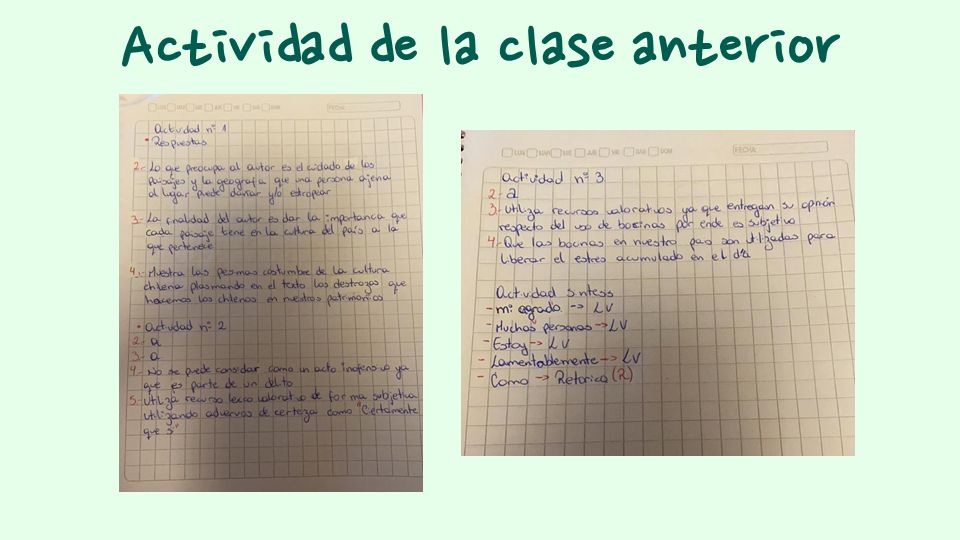 Actividad de la clase anterior
LUN MAR MIE JUE VIE SAB DOM FECHA
Actividad n° 1
• Respuestas
2- Lo que preocupa al autor es el cuidado de los
paisajes y la geografía que una persona ajena
al lugar puede dañar y/o estropear
3- La finalidad del autor es dar la importancia que
cada paisaje tiene en la cultura del país a la
que pertenece
4.- Muestra las pesimas costumbre de la cultura
chilena plasmando en el texto los destrozos que
hacemos los chilenos en nuestros patrimonios
• Actividad n° 2
2- a
3- a
4- No se puede considar como un acto inofensivo ya
que es parte de un delito
5- Utiliza recurso lexico valorativo de forma subjetiva
utilizando advervos de certeza como "Certamente
que si"
LUN MAR MIE JUE VIE SAB DOM FECHA:
Actividad n° 3
2- a
3- Utiliza recursos valorativos ya que entregan su opinión
respecto del uso de bocinas por ende es subjetivo
4- Que las bocinas en nuestro pais son utilizadas para
liberar el estres acumulado en el día
Actividad sintesis
- mi agrado --> LV
- Muchas personas -> LV
- Estoy -> LV
- Lamentablemente -> LV
- Como -> Retorico (R)